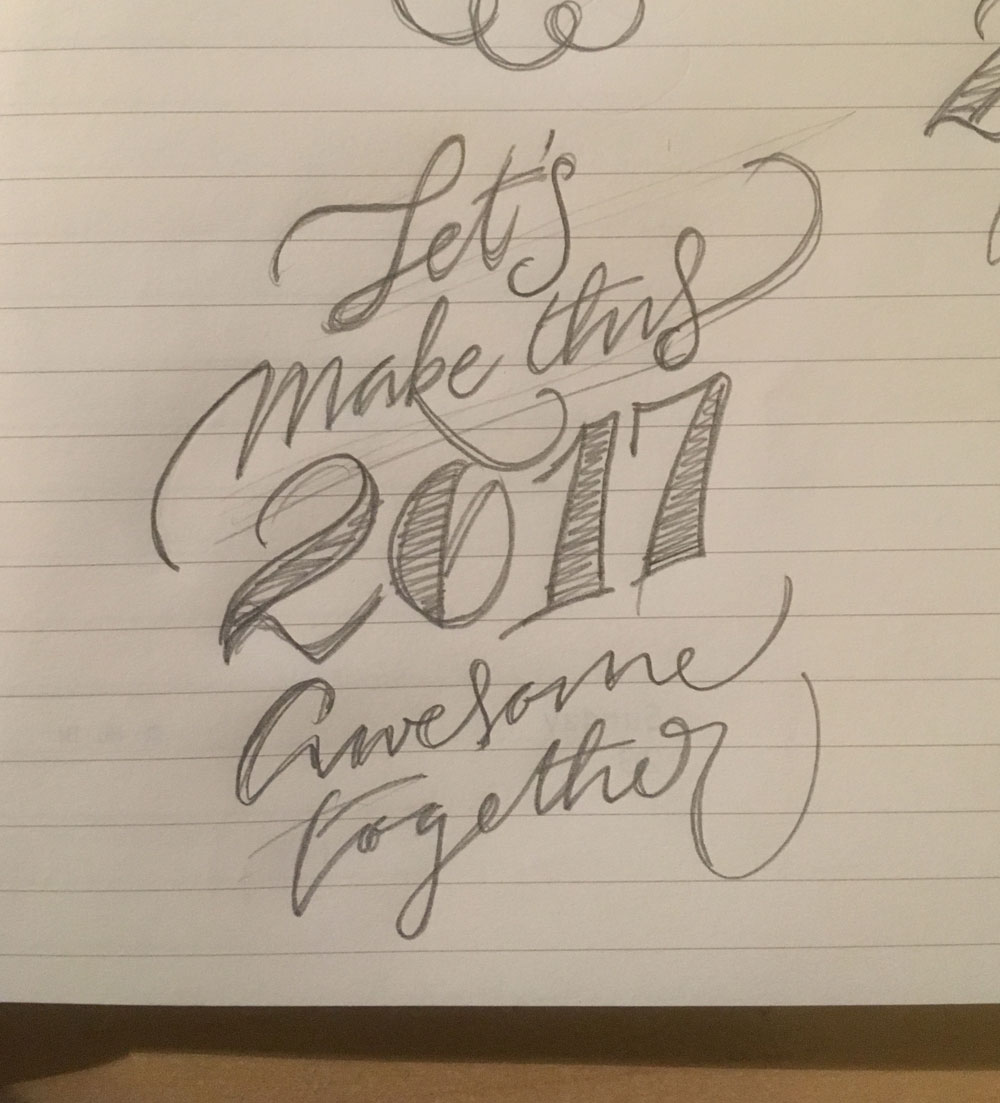 Let's
make this
2017
Awesome
together